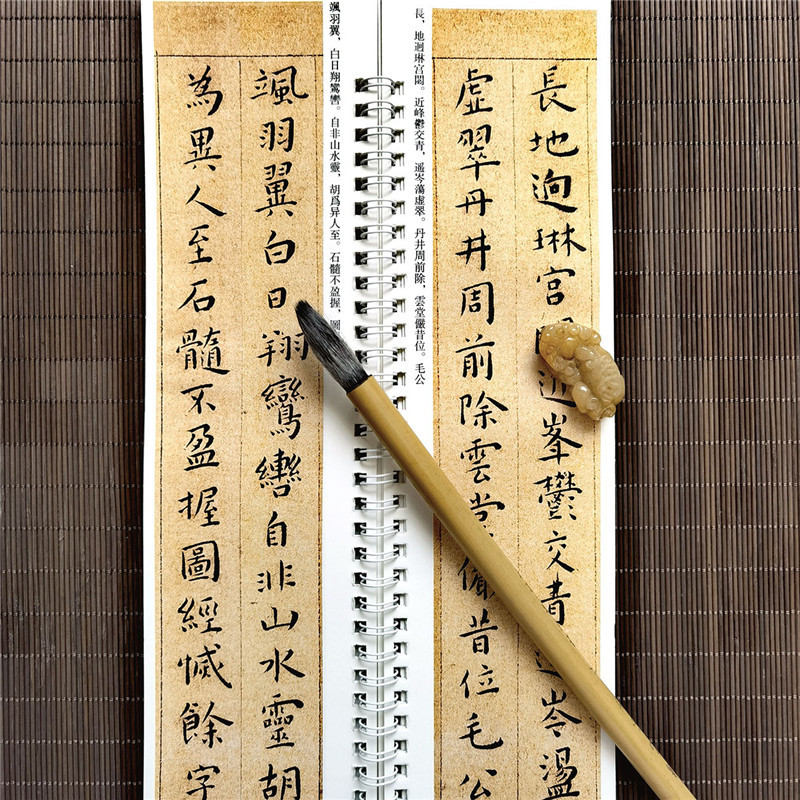 長地逈琳宮近峯鬱交青岑盪
虛翠丹井周前除雲堂儼昔位毛公
長、地迥琳宫閟。近峰鬱交青，遥岑蕩虛翠。丹井周前除，雲堂儼昔位。毛公
颯羽翼，白日翔鸞轡。自非山水靈，胡爲异人至。石髓不盈握，圖
颯羽翼白日翔鸞轡自非山水靈胡
為異人至石髓不盈握圖經慽餘字